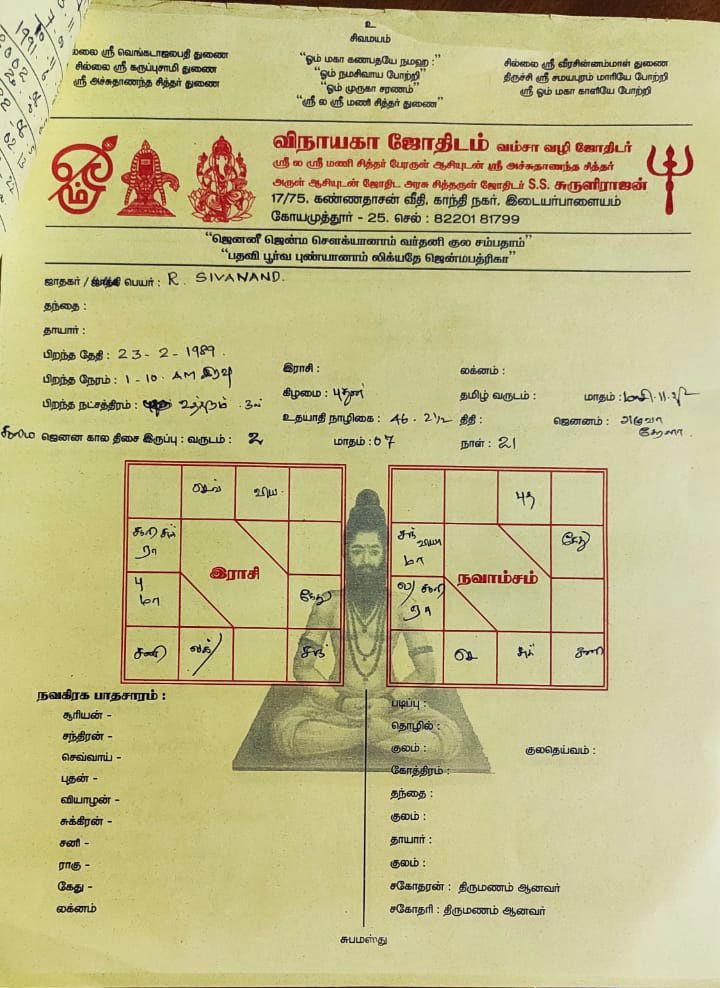 உ
சிவமயம்
தில்லை ஸ்ரீ வெங்கடாஜலபதி துணை
சில்லை ஸ்ரீ கருப்புசாமி துணை
ஸ்ரீ அச்சுதானந்த சித்தர் துணை
“ஓம் மகா கணபதயே நமஹ :”
“ஓம் நமசிவாய போற்றி
“ஓம் முருகா சரணம்”
“ஸ்ரீ ல ஸ்ரீ மணி சித்தர் துணை”
சில்லை ஸ்ரீ வீரசின்னம்மாள் துணை
திருச்சி ஸ்ரீ சமயபுரம் மாரியே போற்றி
ஸ்ரீ ஓம் மகா காளியே போற்றி
ஓம்
விநாயகா ஜோதிடம் வம்சா வழி ஜோதிடர்
ஸ்ரீ ல ஸ்ரீ மணி சித்தர் பேரருள் ஆசியுடன் ஸ்ரீ அச்சுதானந்த சித்தர்
அருள் ஆசியுடன் ஜோதிட அரசு சித்தருள் ஜோதிடர் S.S. சுருளிராஜன்
17/75, கண்ணதாசன் வீதி, காந்தி நகர், இடையர்பாளையம்
கோயமுத்தூர் - 25. செல் : 82201 81799
“ஜெனனீ ஜென்ம சௌக்யானாம் வர்தனி குல சம்பதாம்”
“பதவி பூர்வ புண்யானாம் லிக்யதே ஜென்மபத்ரிகா”
ஜாதகர் / பெயர் : R. SIVANAND.
தந்தை :
தாயார் :
பிறந்த தேதி : 23-2-1989.
பிறந்த நேரம் : 1-10 AM இரவு
இராசி :
லக்னம் :
கிழமை : புதன்
தமிழ் வருடம் :
மாதம் : மாசி.11.
பிறந்த நட்சத்திரம் : உத்திரம் .3
உதயாதி நாழிகை : 46. 2 1/2
திதி :
ஜெனனம் :
ஜெனன கால திசை இருப்பு : வருடம் : 2
மாதம் : 07
நாள் : 21
செவ்
வியா
சூரி சுக்
ரா
பு
மா
கேது
சனி
லக்/
சந்
இராசி
புத
சந் வியா
மா
கேது
ல/ சூரி
ரா
செ
சுக்
சனி
நவாம்சம்
நவகிரக பாதசாரம் :
சூரியன் -
சந்திரன் -
செவ்வாய் -
புதன் -
வியாழன் -
சுக்கிரன் -
சனி -
ராகு -
கேது -
லக்னம்
படிப்பு :
தொழில் :
குலம் :
குலதெய்வம் :
கோத்திரம் :
தந்தை :
குலம் :
தாயார் :
குலம் :
சகோதரன் : திருமணம் ஆனவர்
சகோதரி : திருமணம் ஆனவர்
சுபமஸ்து